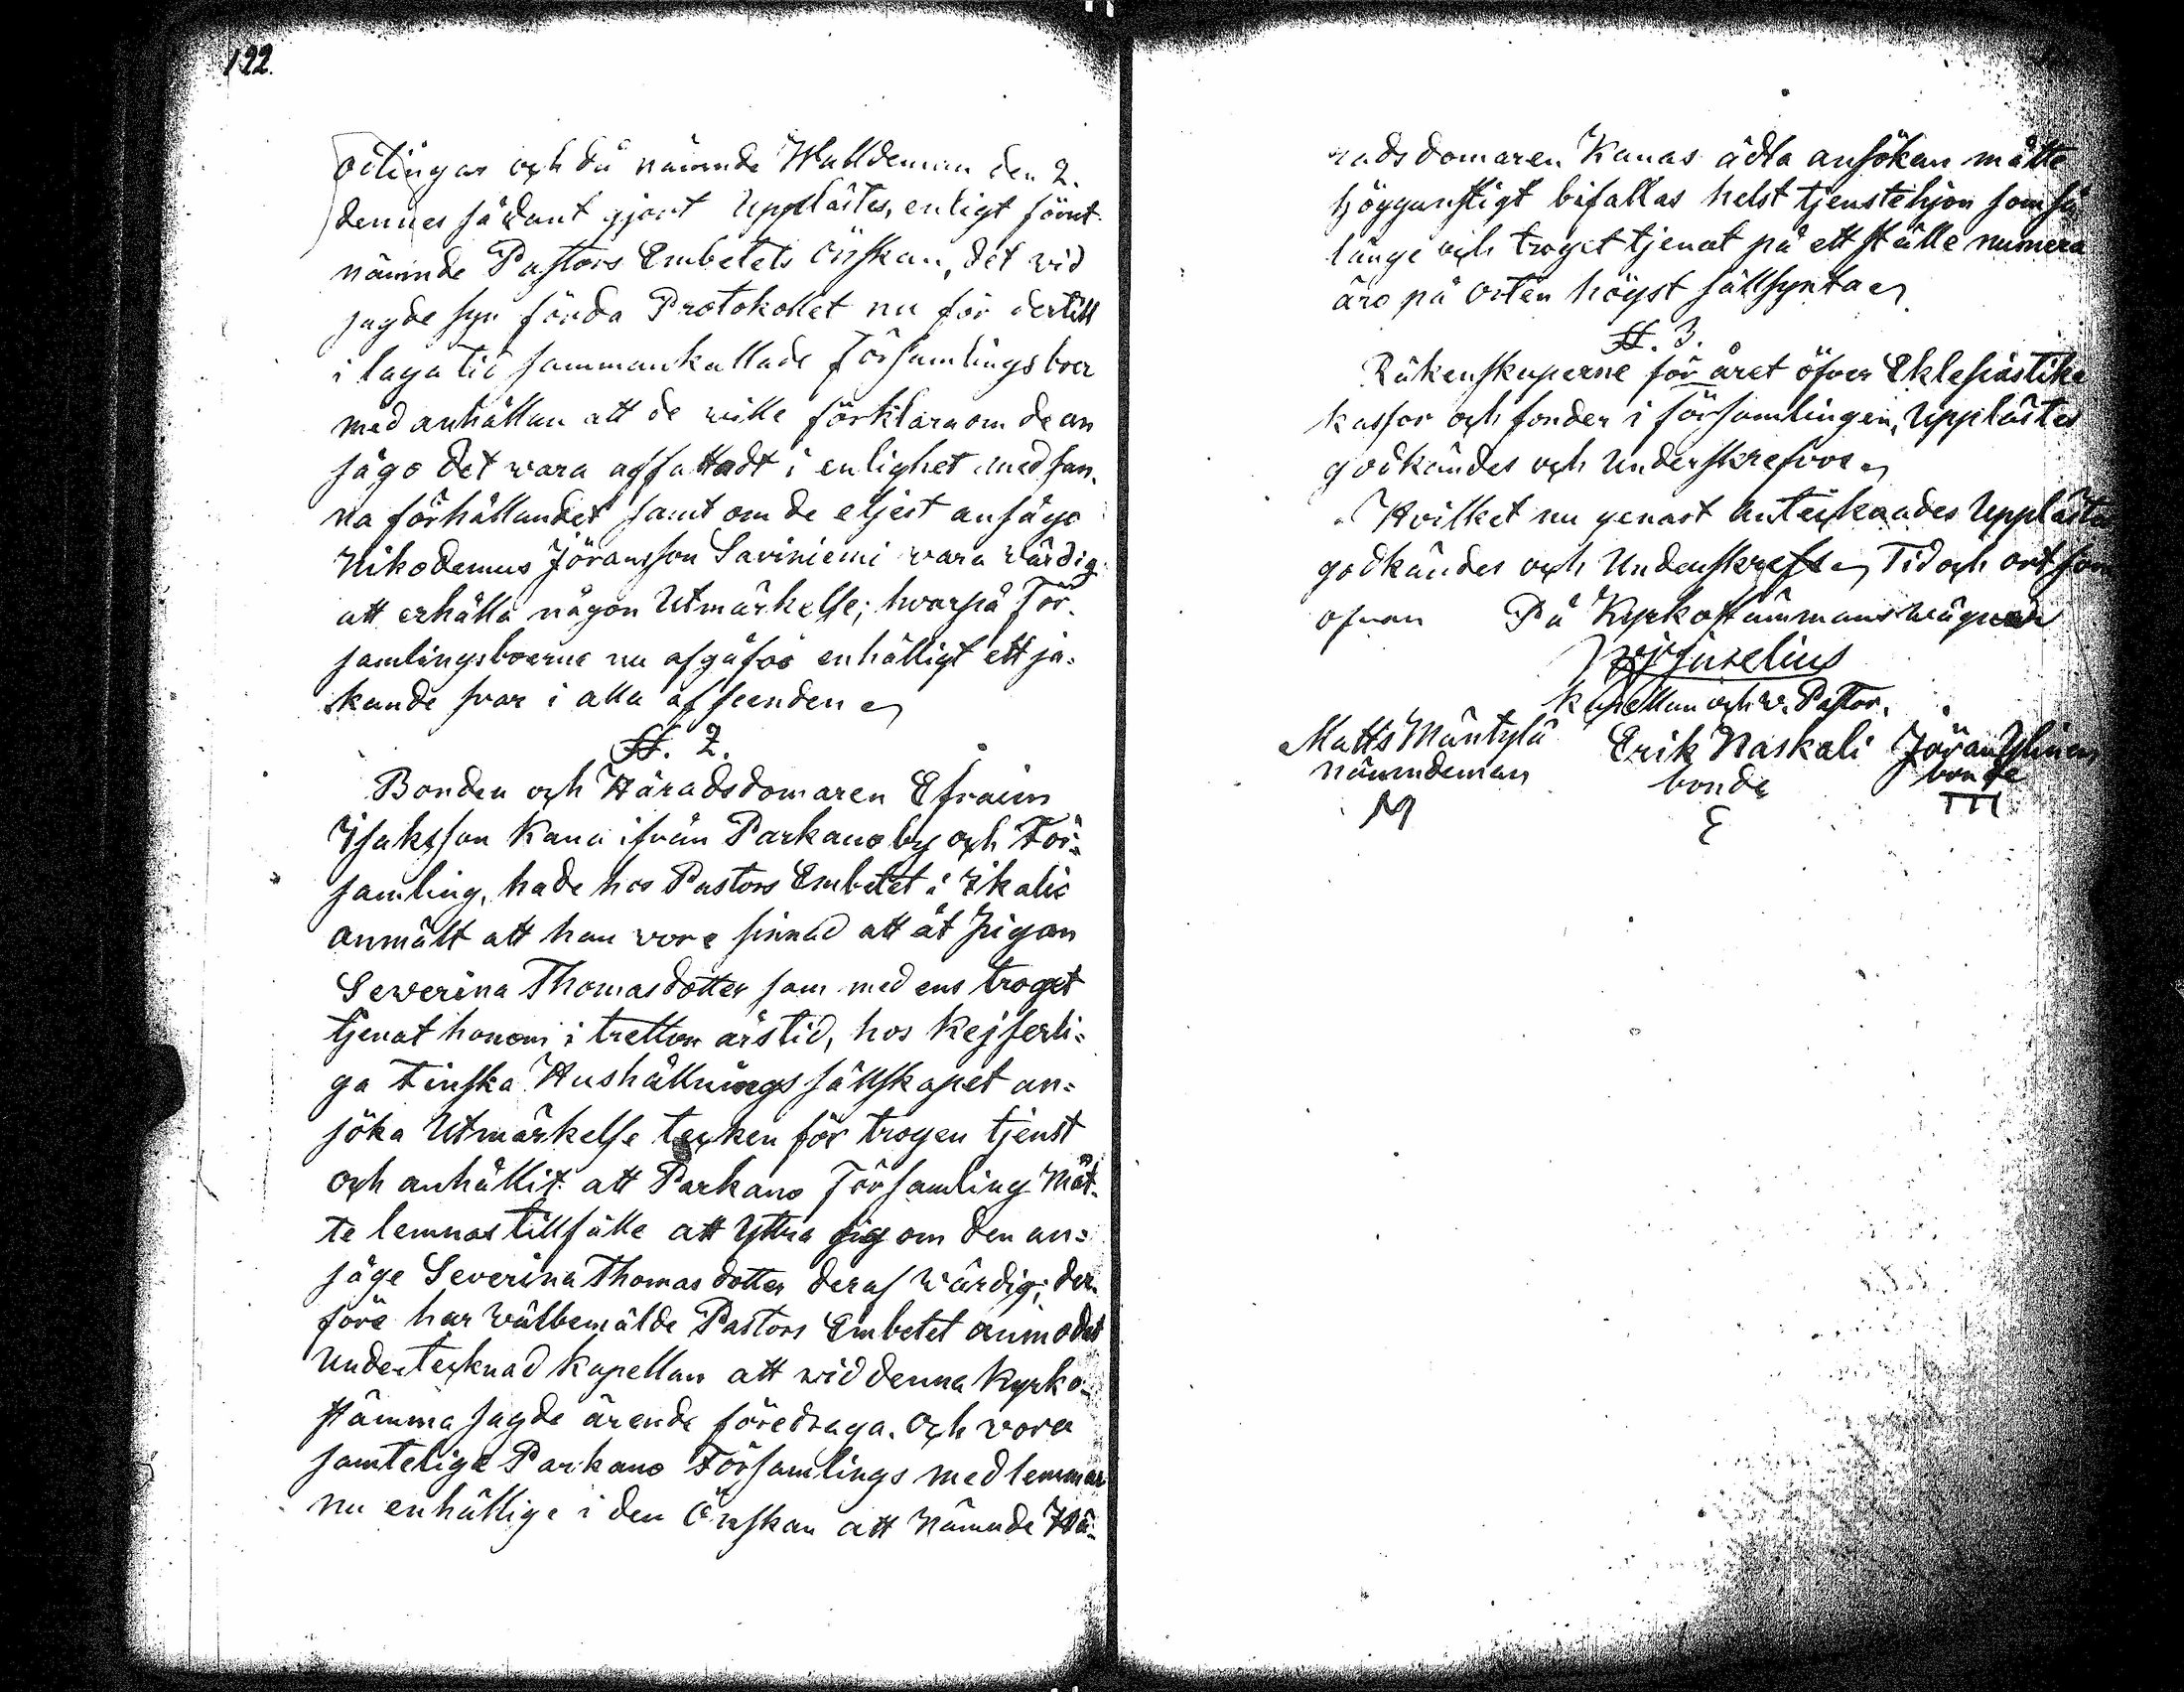 122.
odlingar och då nämnde Walldeman den 2.
dennes sådant gjort Upplästes, enligt först
nämnde Pastors Embetets önskan, det wid
sagde syn förda Protokollet nu för dertill
i laga tid sammankallade Församlingsboer
med anhållan att de wille förklara om de an
sågo det wara affattadt i enlighet med san,
na förhållandet samt om de eljest ansågo
Nikodemus Jöransson Saviniemi wara wärdig
att erhålla någon Utmärkelse; hvarpå För-
samlingsboerne nu afgåfvo enhälligt ett ja-
kande svar i alla afseenden
§. 2.
Bonden och Häradsdomaren Efraim
Isaksson Kana ifrån Parkano by och För-
samling, hade hos Pastors Embetet i Ikalis
anmält att han vore sinnad att åt Pigan
Severina Thomasdotter som med ens troget
tjenat honom i tretton års tid, hos Kejserli-
ga Finska Hushållnings sällskapet an-
söka Utmärkelse tecken för trogen tjenst
och anhållit att Parkano Församling måt-
te lemnas tillfälle att yttra sig om den an-
såge Severina Thomasdotter deraf wärdig; der
före har wälbemälde Pastors Embetet anmodat
Undertecknad Kapellan att wid denna Kyrko-
stämma sagde ärende föredraga. Och vore
samtelige Parkano Församlings medlemmar
nu enhällige i den Önskan att Nämnde Hä-
radsdomaren Kanas ädla ansökan måtte
Höggunstigt bifallas helst tjenstehjon som så
länge och troget tjenat på ett ställe numera
äro på orten högst sällsynta
§. 3.
Räkenskaperne för året öfver Eklesiastike
kassor och fonder i församlingen, Upplästes
godkändes och Underskrefvos
Hvilket nu genast Antecknades Upplästes
godkändes och Underskrefs Tid och ort som
ofvan På Kyrkostämmans wägnar
Juselius
Kapellan och v. Pastor.
Matts Mäntylä Erik Naskali Jöran Ylinen
nämndeman bonde bonde
M E